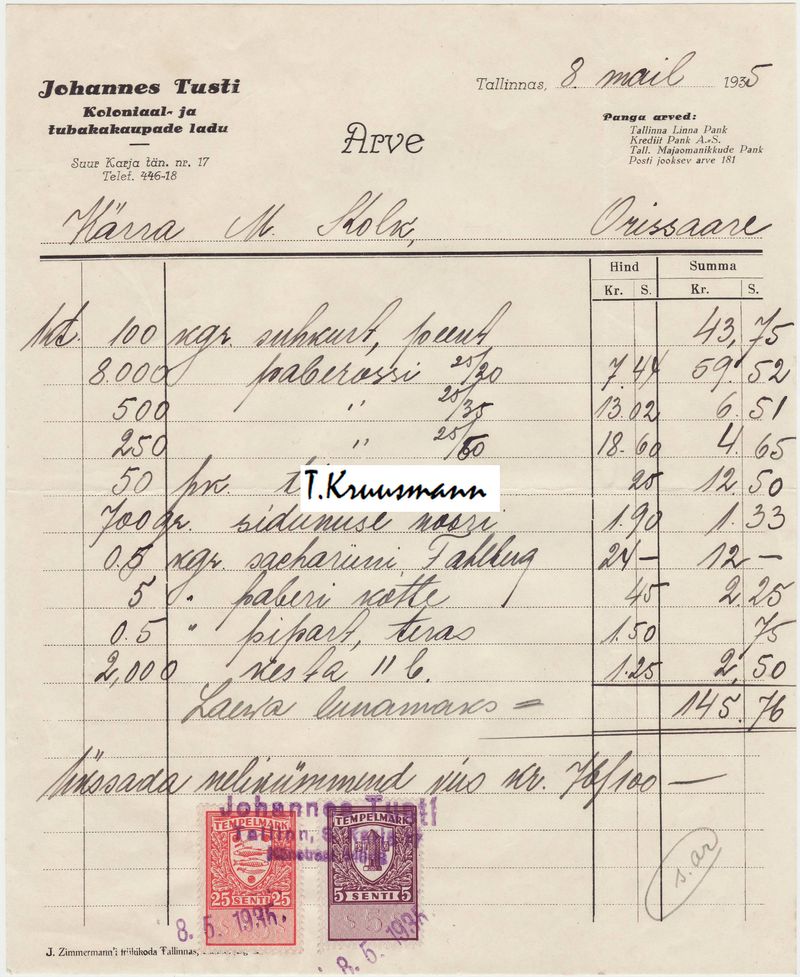 Johannes Tusti
Koloniaal- ja
tubakakaupade ladu
Suur Karja tän. nr. 17
Telef. 446-18
Arve
Tallinnas, 8. mail 1935
Panga arved:
Tallinna Linna Pank
Krediit Pank A.-S.
Tall. Majaomanikkude Pank
Posti jooksev arve 181
Kärra M. Kolk, Orissaare
Hind Summa
Kr. S. Kr. S.
1 kt. 100 kgr. suhkurt, peent 43,75
8.000 paberossi 25/20 7.44 59.52
500 " 25/35 13.02 6.51
250 " 25/50 18.60 4.65
50 pk. 25 12.50
T.Kruusmann
700 gr. sidunuse nööri 1.90 1.33
0.5 kgr. sachariini, Fahlberg 24- 12-
5 " paberi kotte 45 2.25
0.5 " pipart, teras 1.50 75
2,000 kesta II b. 1.25 2,50
Laeva lunamaks =
145.76
Ükssada nelikümmend viis kr. 76/100 —
Johannes Tusti
Tallinn, S. Karja 17
TEMPELMARK
25 SENTI 25
TEMPELMARK
5 SENTI 5
8. 5. 1935.
8. 5. 1935
s. ar
J. Zimmermann'i trükikoda Tallinnas,